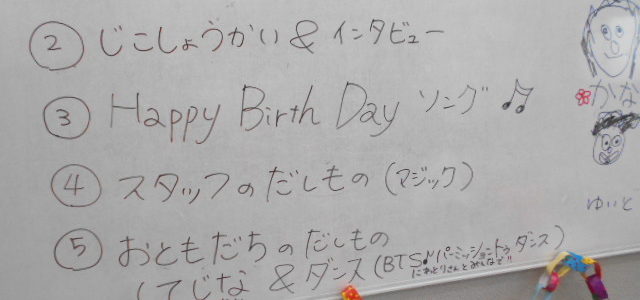 ② じこしょうかい & インタビュー
③ Happy Birth Day ソング ♫
④ スタッフのだしもの (マジック)
⑤ おともだちのだしもの
(てじな & ダンス (BTS♪パーミッショントゥダンス)
にわとりさんとみんなで!!
かな
ゆいと